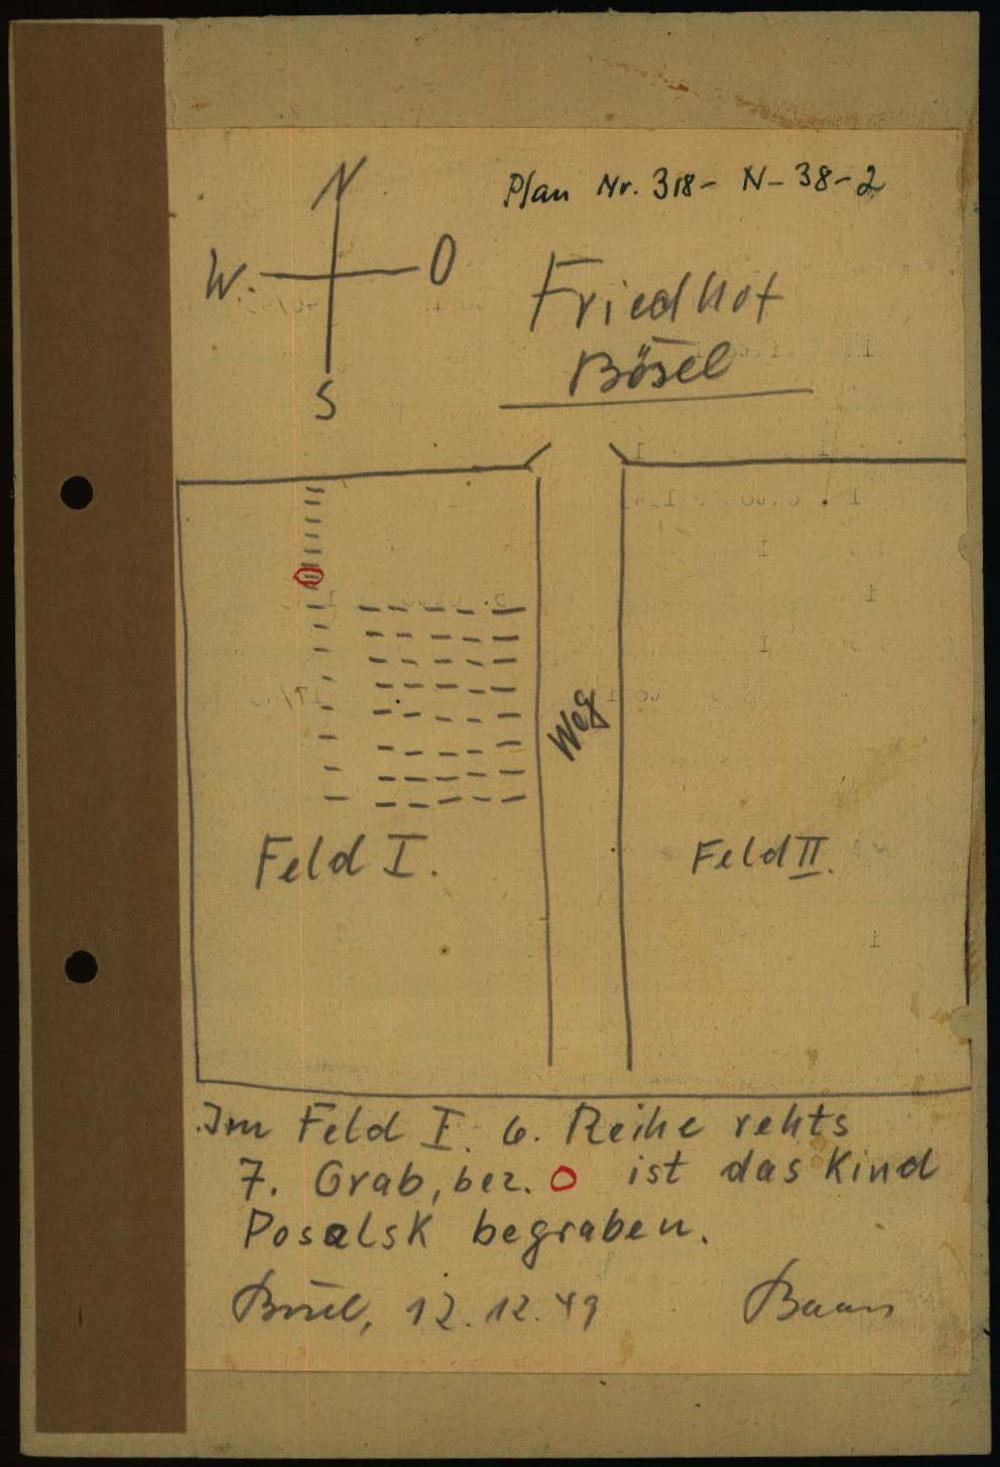 Plan Nr. 318- N-38-2
N
W. O
S
Friedhof
Bösel
Weg
Feld I.
Feld II.
Im Feld I. 6. Reihe rehts
7. Grab, bez. O ist das Kind
Posalsk begraben.
Bösel, 12.12.49